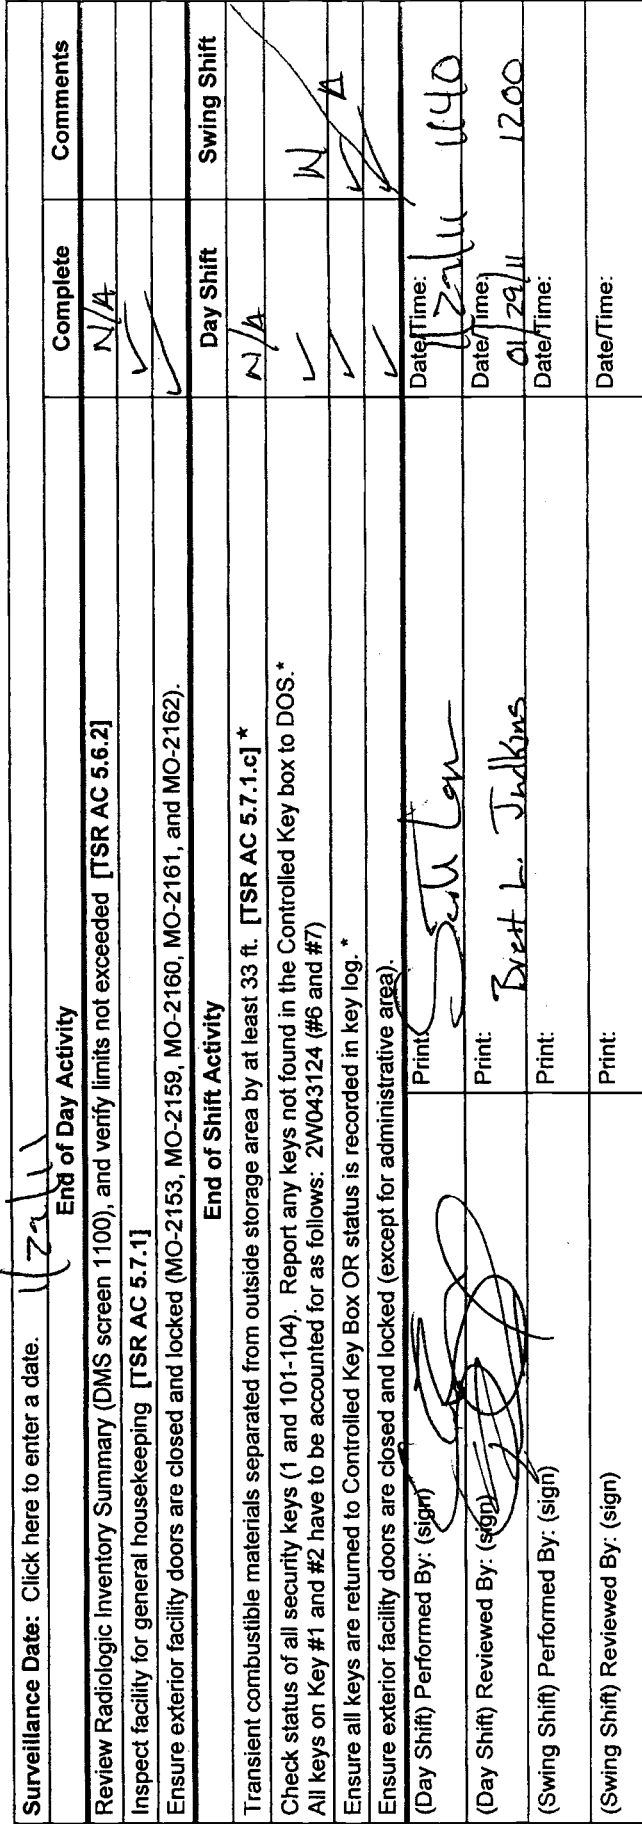 Surveillance Date: Click here to enter a date. 1/29/11
End of Day Activity Complete Comments
Review Radiologic Inventory Summary (DMS screen 1100), and verify limits not exceeded [TSR AC 5.6.2] N/A
Inspect facility for general housekeeping [TSR AC 5.7.1] ✓
Ensure exterior facility doors are closed and locked (MO-2153, MO-2159, MO-2160, MO-2161, and MO-2162). ✓
End of Shift Activity Day Shift Swing Shift
Transient combustible materials separated from outside storage area by at least 33 ft. [TSR AC 5.7.1.c] * N/A
Check status of all security keys (1 and 101-104). Report any keys not found in the Controlled Key box to DOS.* ✓ N A
All keys on Key #1 and #2 have to be accounted for as follows: 2W043124 (#6 and #7)
Ensure all keys are returned to Controlled Key Box OR status is recorded in key log. * ✓ ✓
Ensure exterior facility doors are closed and locked (except for administrative area). ✓ ✓
(Day Shift) Performed By: (sign) Print: Date/Time: 1/29/11 1140
(Day Shift) Reviewed By: (sign) Print: Brett L. Judkins Date/Time: 01/29/11 1200
(Swing Shift) Performed By: (sign) Print: Date/Time:
(Swing Shift) Reviewed By: (sign) Print: Date/Time: